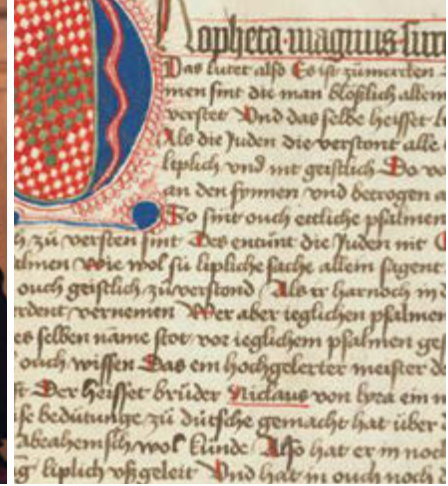 Propheta magnus surr
Das lutet also Es ist zumercken
men sint die man blößlich allein
verstet Vnd das selbe heisset l
Als die Juden die verstont alle
liplich vnd nit geistlich Do vo
an den synnen vnd betrogen
So sint ouch ettliche psalmen
h zü versten sint Des entünt die Juden nit
almen wie wol sü lipliche sache allein sagent
ouch geistlich zu verstond Als er harnoch in d
rdent vernemen Wer aber ieglichen psalmen
es selben name stot vor ieglichem psalmen ges
ouch wissen Das ein hochgelerter meister de
Der heisset brüder Niclaus von lyra ein m
se bedütunge zü dütsche gemacht hat über d
Abrahemsch wol kunde Also hat er in noch
g liplich vßgeleit Vnd hat in ouch noch